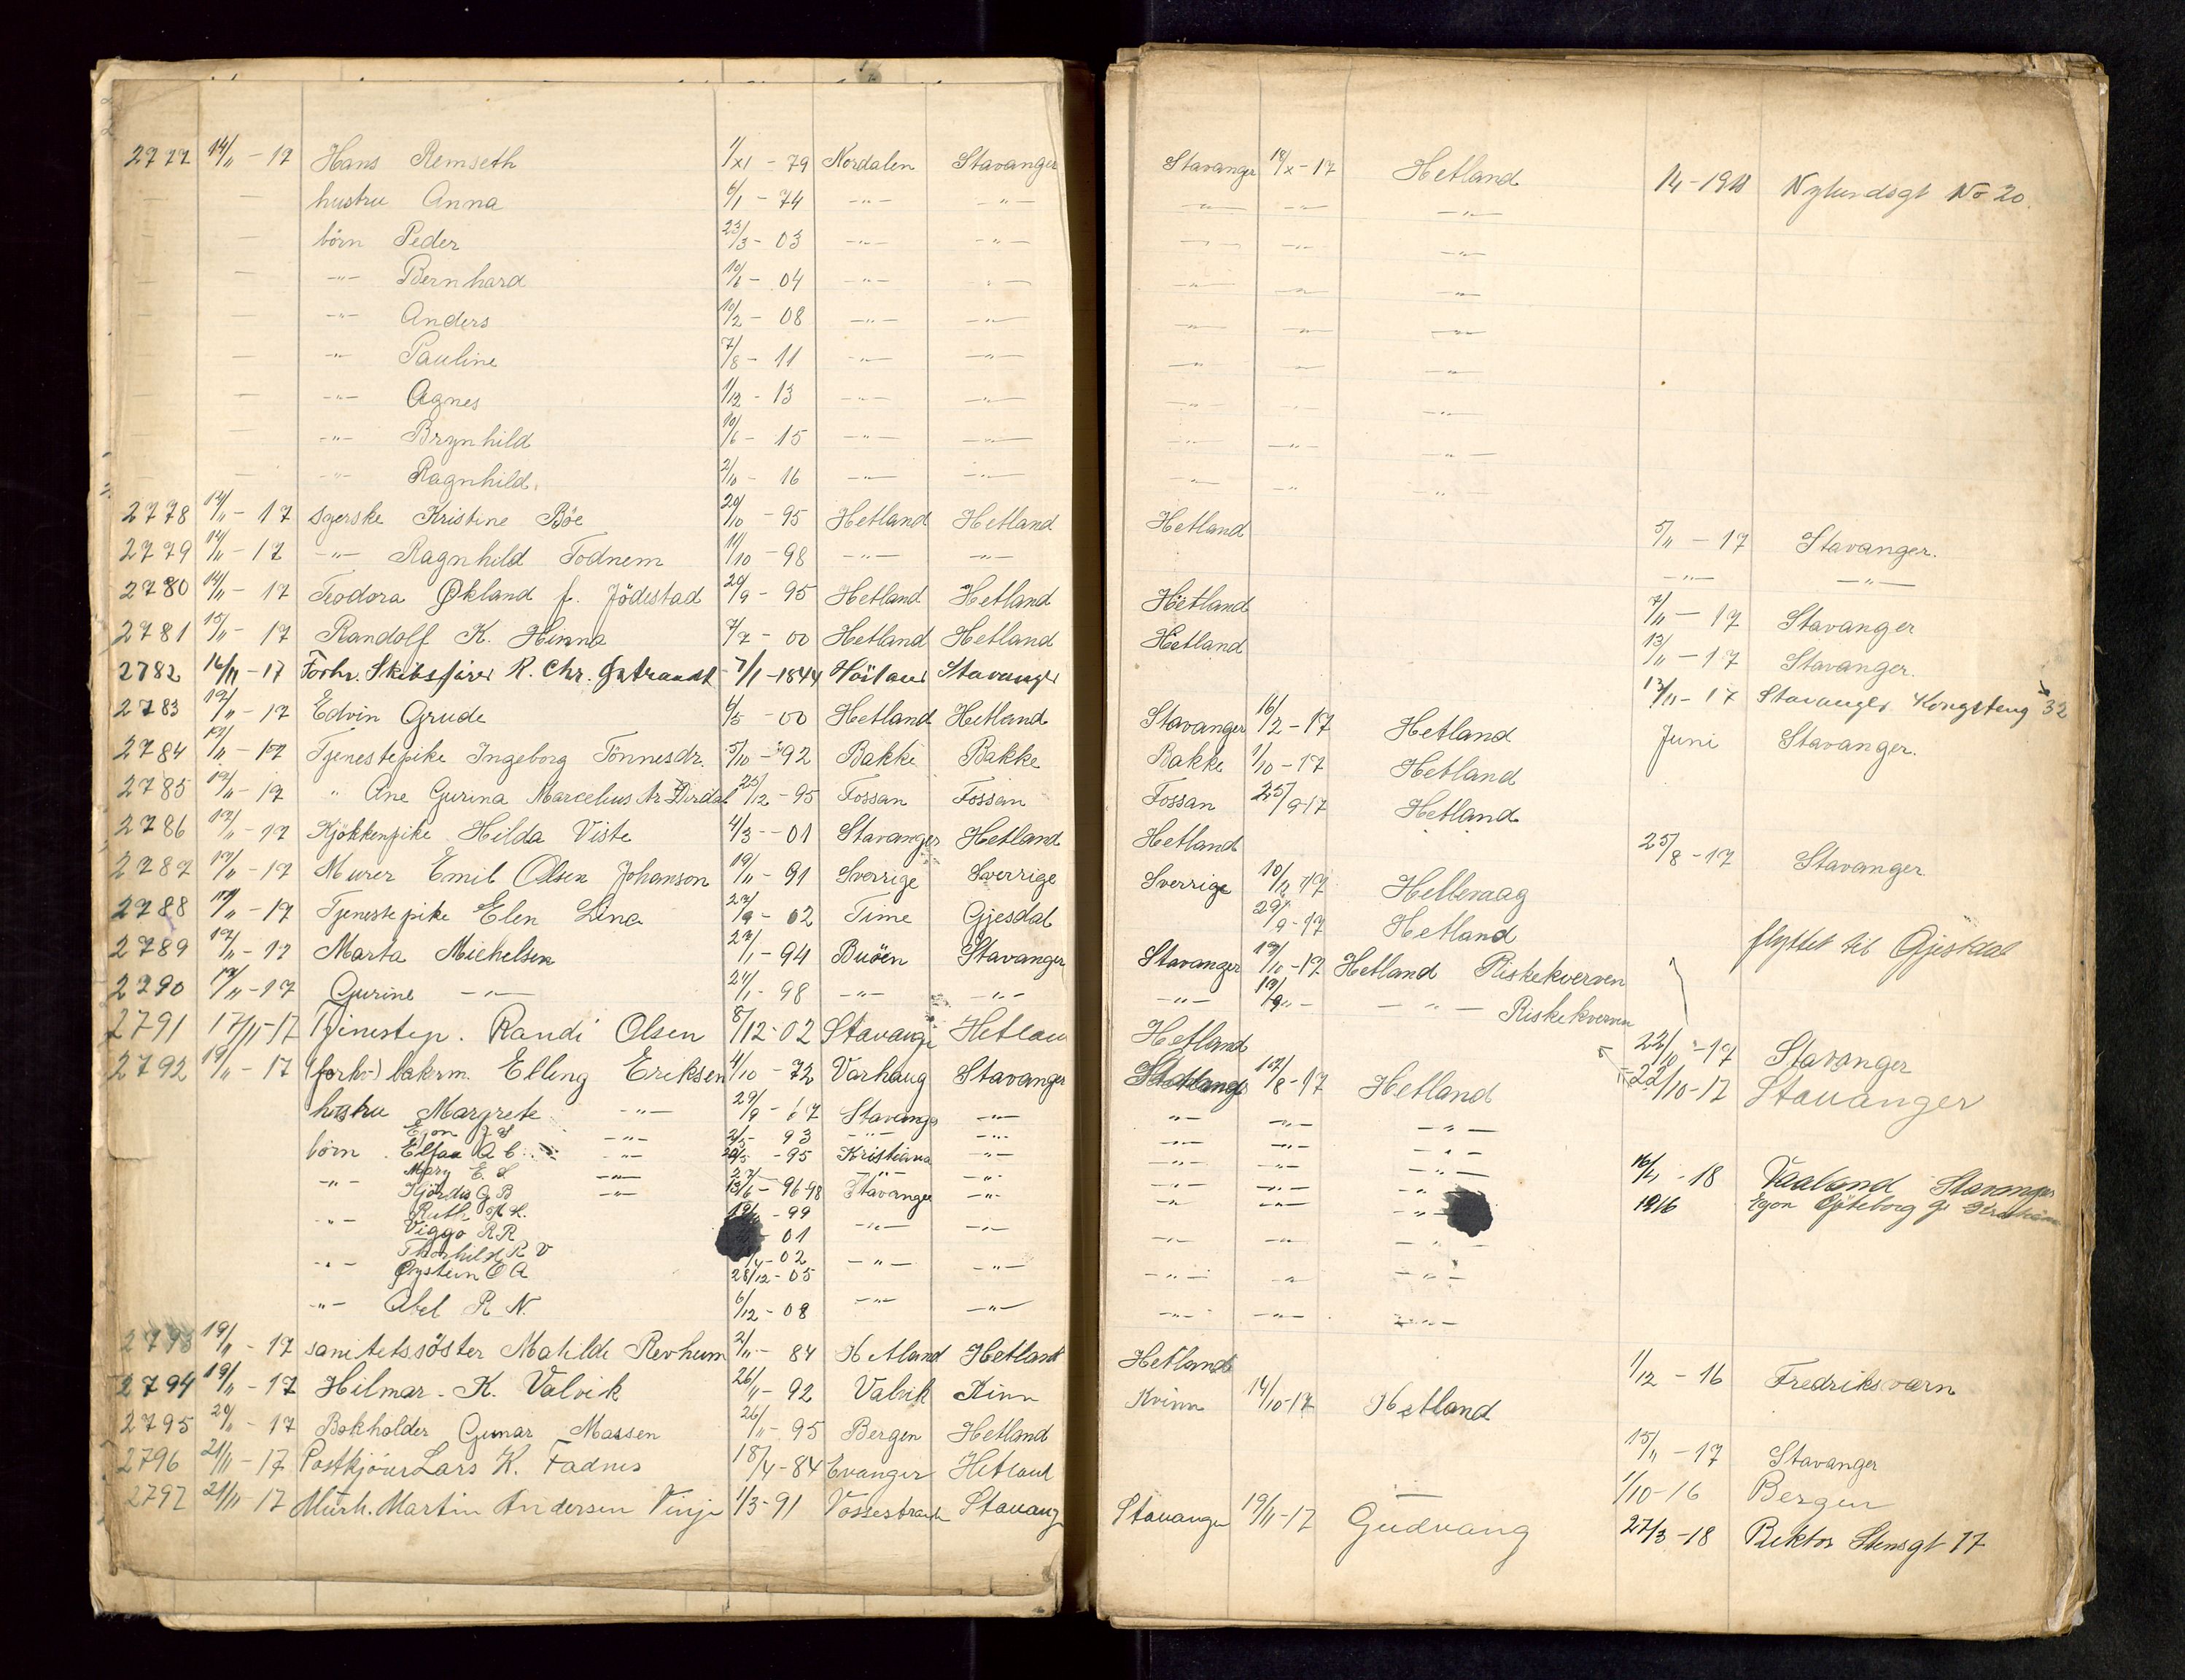 2777 14/11 - 17 Hans Remseth 1/XI - 79 Nordalen Stavanger Stavanger 18/X - 17 Hetland 1/4 - 1918 Nylundsgt No 20.
— — hustru Anna 6/1 - 74 -"- -"- -"- -"- -"-
— — börn Peder 23/3 - 03 -"- -"- -"- -"- -"-
— — -"- Bernhard 10/6 - 04 -"- -"- -"- -"- -"-
— — -"- Anders 10/2 - 08 -"- -"- -"- -"- -"-
— — -"- Pauline 7/8 - 11 -"- -"- -"- -"- -"-
— — -"- Agnes 1/12 - 13 -"- -"- -"- -"- -"-
— — -"- Brynhild 10/6 - 15 -"- -"- -"- -"- -"-
— — -"- Ragnhild. 2/10 - 16 -"- -"- -"- -"- -"-
2778 14/11 - 17 syerske Kristine Böe 29/10 - 95 Hetland Hetland Hetland 5/11 - 17 Stavanger.
2779 14/11 - 17 -"- Ragnhild Todnem 11/10 - 98 -"- -"- -"- -"-
2780 14/11 - 17 Teodora Økland f. Jödestad 29/9 - 95 Hetland Hetland Hetland 7/11 - 17 Stavanger
2781 15/11 - 17 Randolf K. Hinna 7/7 - 00 Hetland Hetland Hetland 13/11 - 17 Stavanger.
2782 16/11 - 17 Forhv. Skibsförer R. Chr. 7/1 - 1844 Stavanger 13/11 - 17 Stavanger Kongsteng 32
2783 17/11 - 17 Edvin Grude 6/5 - 00 Hetland Hetland Stavanger 16/2 - 17 Hetland Juni Stavanger.
2784 17/11 - 17 Tjenestepike Ingeborg Tönnesdr. 5/10 - 92 Bakke Bakke Bakke 1/10 - 17 Hetland
2785 17/11 - 17 " Ane Gurina Marcelius dtr Dirdal 25/12 - 95 Fossan Fossan Fossan 25/9 17 Hetland
2786 17/11 - 17 Kjökkenpike Hilda Viste 4/3 - 01 Stavanger Hetland Hetland 25/8 - 17 Stavanger
2787 17/11 - 17 Murer Emil Olsen Johanson 19/11 - 91 Sverrige Sverrige Sverrige 10/12 17 Hellevaag
2788 17/11 - 17 Tjenestepike Elen Lina 27/9 - 02 Time Gjesdal 29/9 - 17 Hetland flyttet til Gjestdal
2789 17/11 - 17 Marta Michelsen 27/1 - 94 Buöen Stavanger Stavanger 19/10 - 17 Hetland Riskekverven
2790 17/11 - 17 Gurine -"- 27/1 - 98 -"- -"- -"- -"- Riskekverven
2791 17/11 - 17 Tjinestep. Randi Olsen 8/12 - 02 Stavange Hetlan Hetland 22/10 - 17 Stavanger
2792 19/11 - 17 (forhv.) bakerm. Elling Eriksen 4/10 - 72 Varhaug Stavanger 12/8 - 17 Hetland 22/10 - 17 Stavanger
hustru Margrete -"- 29/9 - 67 Stavanger -"- -"- -"- -"-
Egon -"- 2/5 93 -"- -"- -"- -"-
börn -"- - 95 Kristiania -"- -"- -"- -"-
-"- Mary E. S. -"- - 96 -"- -"- -"- -"- -"- 16/4 - 18 Vaaland Stavanger
Hjördis G B -"- 13/6 - 98 Stavanger -"- -"- -"- -"- 1916 Egon Göteborg
-"- Ruth M. H. - 99
Viggo R. R. - 01 -"- -"- -"- -"- -"-
-"- Thorhild R V - 02 -"- -"-
Øystein O A 28/12 - 05 -"- -"- -"-
-"- Abel R N. 6/12 - 08 -"- -"- -"- -"- -"-
2793 19/11 - 17 sanitetssöster Matilde Revheim 2/11 - 84 Hetland Hetland Hetland 1/12 - 16 Fredriksvarn
2794 19/11 - 17 Hilmar K. Valvik 26/11 - 92 Valvik Kinn Kvinn 14/10 - 17 Hetland
2795 20/11 - 17 Bokholder Gunar Massen 26/11 - 95 Bergen Hetland 15/11 - 17 Stavanger
2796 21/11 - 17 Postkjörer Lars K. Fadnes 18/4 - 84 Evanger Hetland — 1/10 - 16 Bergen
2797 21/11 - 17 Murh. Martin Andersen Vinje 1/3 - 91 Vossestrand Stavang Stavanger 19/11 - 17 Gudvang 27/3 - 18 Rektor Stensgt 17